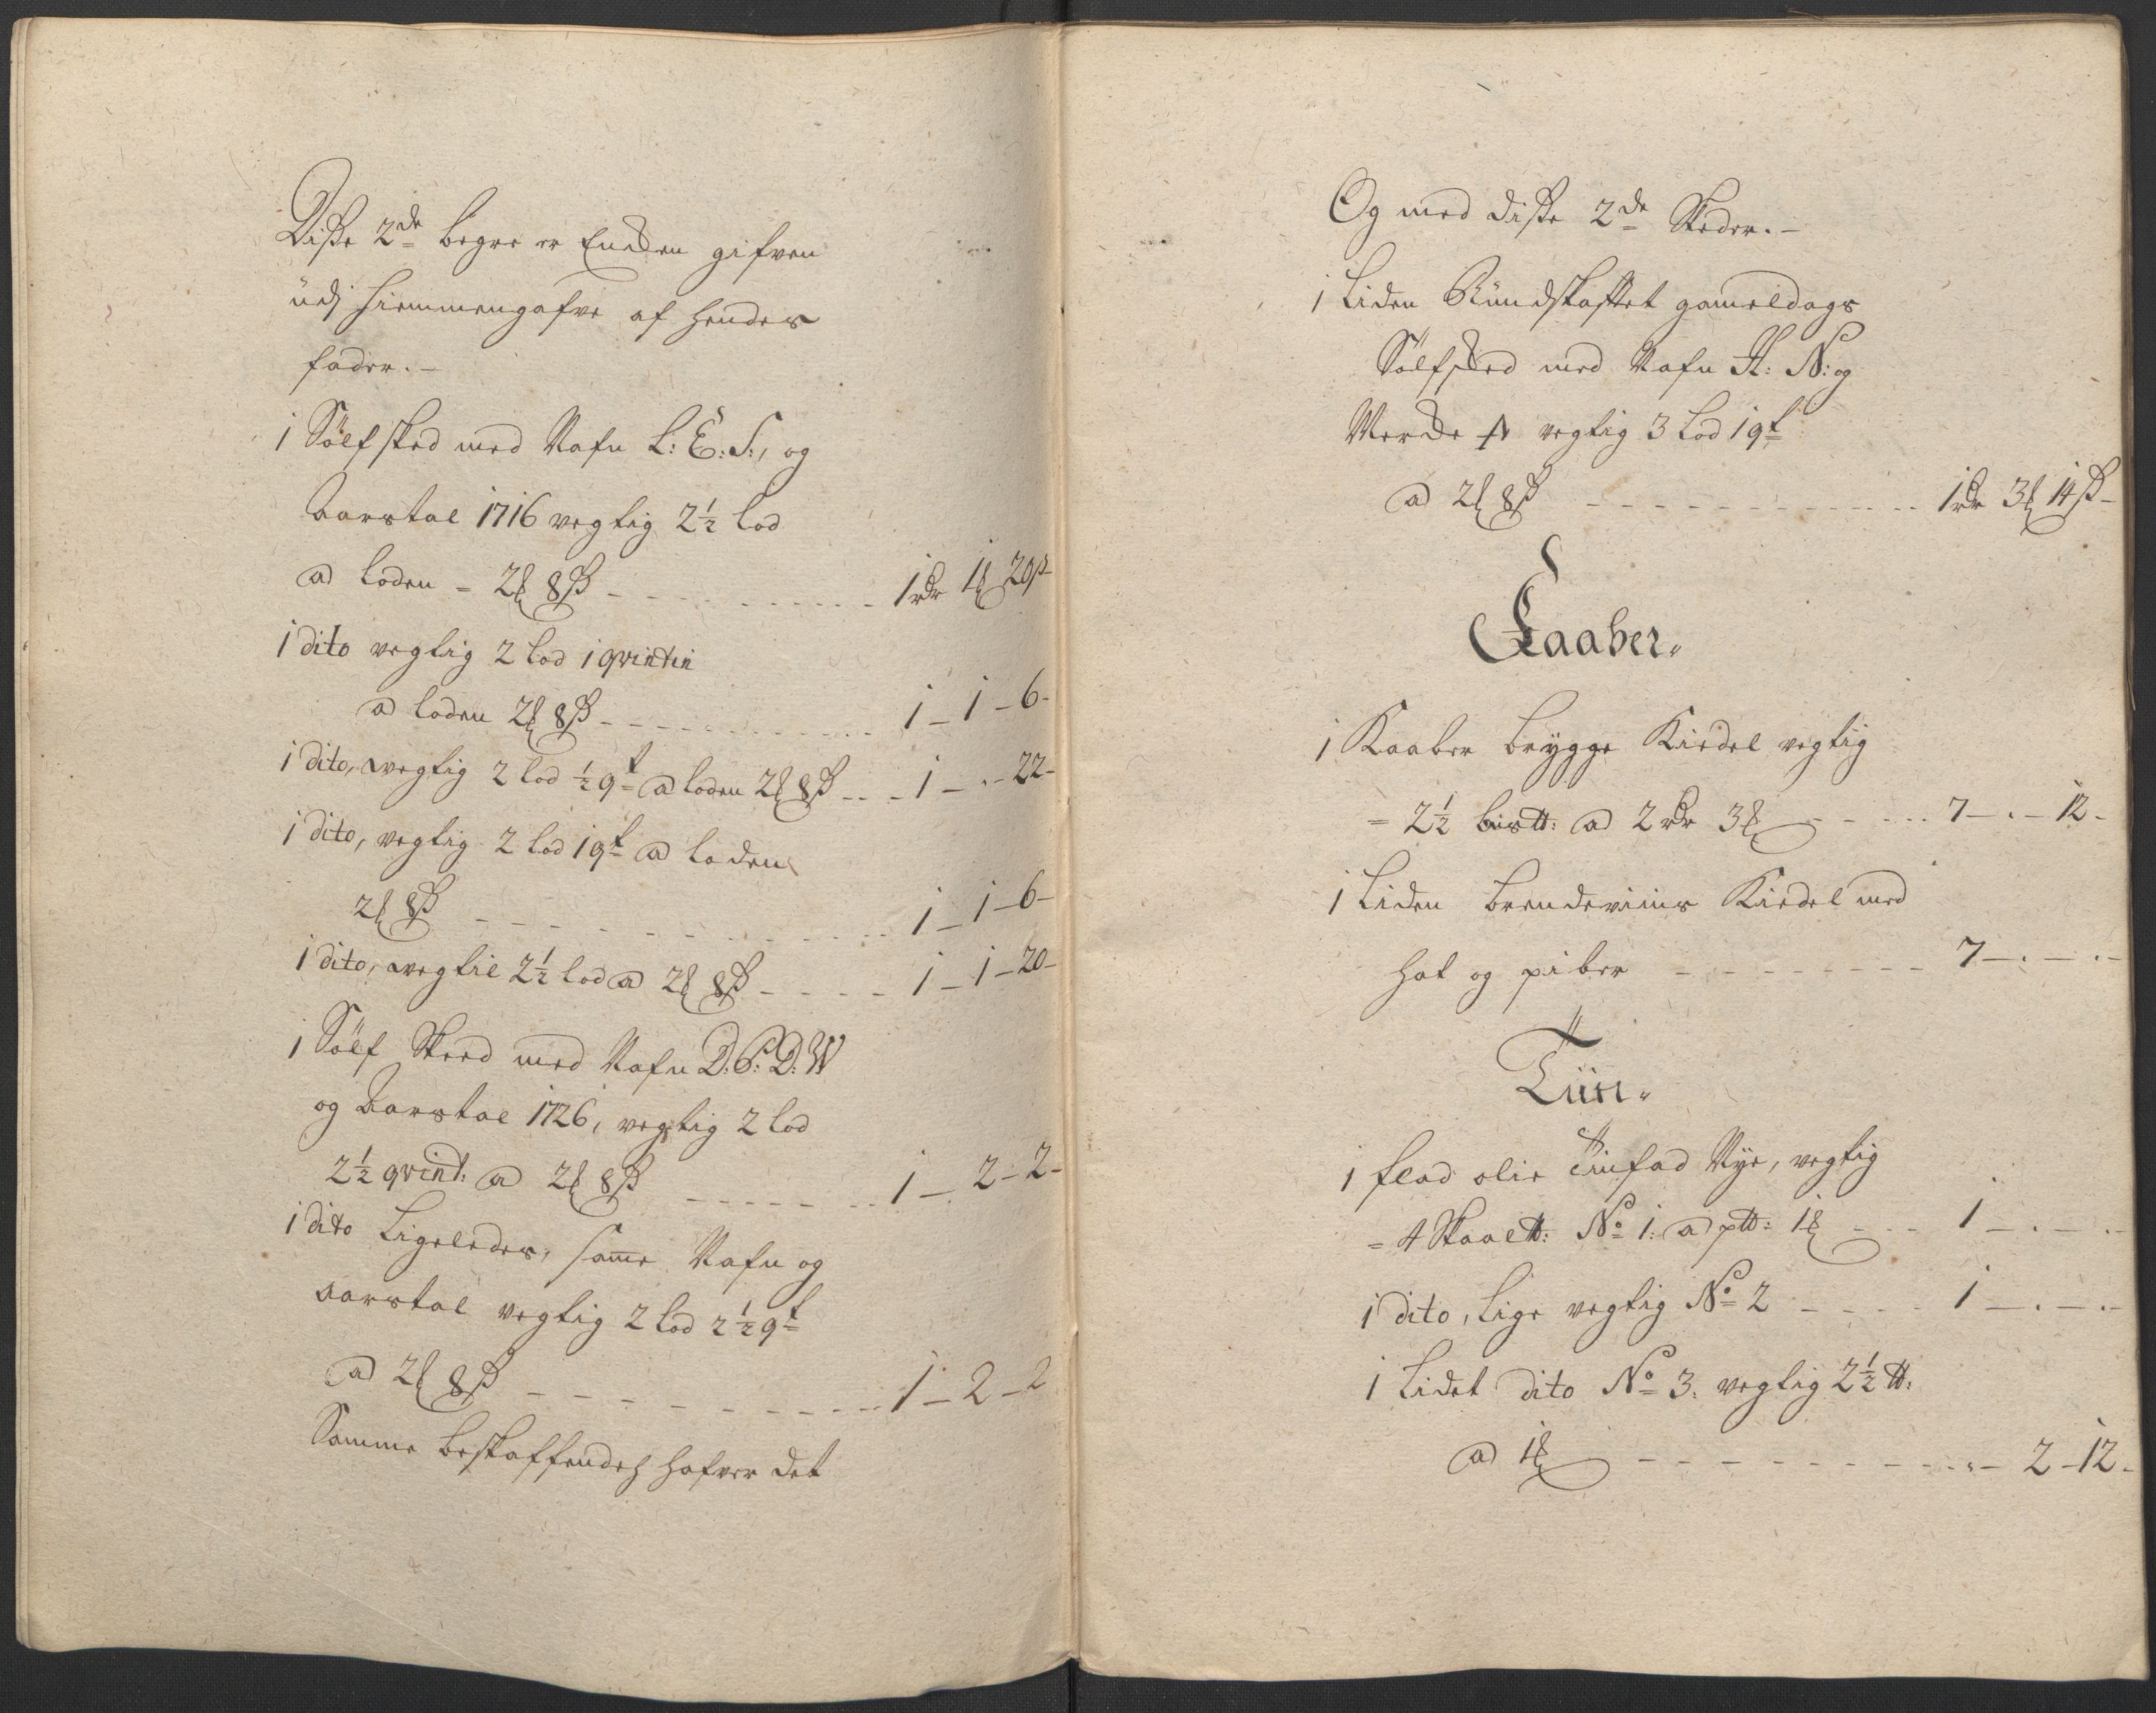 Disse 2de begre er Enken gifven
udj hiemmengafve af hendes
fader.-
1 Sölf sked med Nafn L: E: S:, og
Aarstal 1716 vegtig 2½ lod
a loden = 2 8ß - - - 1rdr 1 20ß-
1 dito vegtig 2 lod 1 qvintin
a loden 2 8ß - - - 1 - 1 - 6-
1 dito, vegtig 2 lod ½ qt a loden 2 8ß - - - 1 - . - 22-
1 dito, vegtig 2 lod 1 qt a loden
2 8ß - - - 1 - 1 - 6-
1 dito, vegtil 2½ lod a 2 8ß - - - 1 - 1 - 20-
1 Sölf Skeed med Nafn D: P: D: W
og Aarstal 1726, vegtig 2 lod
2½ qvint: a 2 8ß - - - 1 - 2 - 2-
1 dito Ligeledes, same Nafn og
aarstal vegtig 2 lod 2½ qt
a 2 8ß - - - 1 - 2 - 2
Samme beskaffendh hafver det
Og med disse 2de Skeder.-
1 Liden Rundskaftet gameldags
Sölfsked med Nafn H: N: og
Merke vegtig 3 Lod 1 qt
a 2 8ß - - - 1rdr 3 14ß-
Kaaber.
1 Kaaber brygge Kiedel vegtig
= 2½ bis℔: a 2 rdr 3 - - - 7 - . - 12-
1 Liden brendeviins Kiedel med
hat og piber - - - 7 - . - . -
Tiin.
1 flad olie Tinfad Nye, vegtig
= 4 Skaal℔: No 1: a p℔: 1 - - - 1 - . - . -
1 dito, lige vegtig No 2 - - - 1 - . - . -
1 Lidet dito No 3. vegtig 2½ ℔:
a 1 - - - . - 2 - 12-